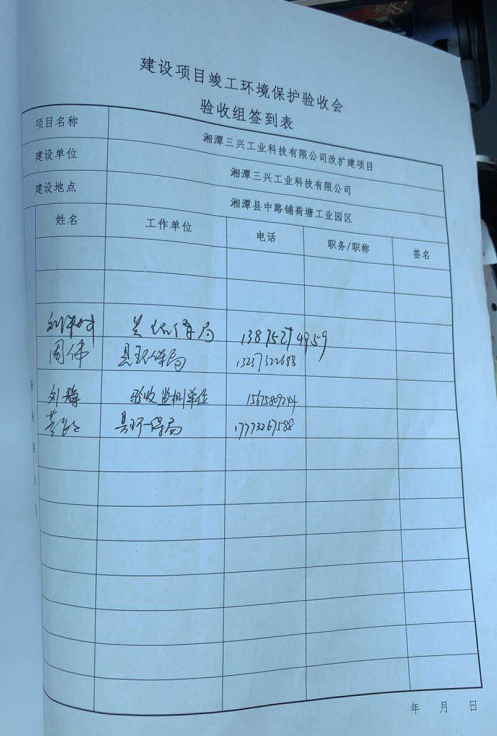 建设项目竣工环境保护验收会
验收组签到表
项目名称 湘潭三兴工业科技有限公司改扩建项目
建设单位 湘潭三兴工业科技有限公司
建设地点 湘潭县中路铺荷塘工业园区
姓名 工作单位 电话 职务/职称 签名
县环保局 13875274959
周伟 县环保局 13237322688
刘静 验收监测单位
县环保局 17773267588
年 月 日